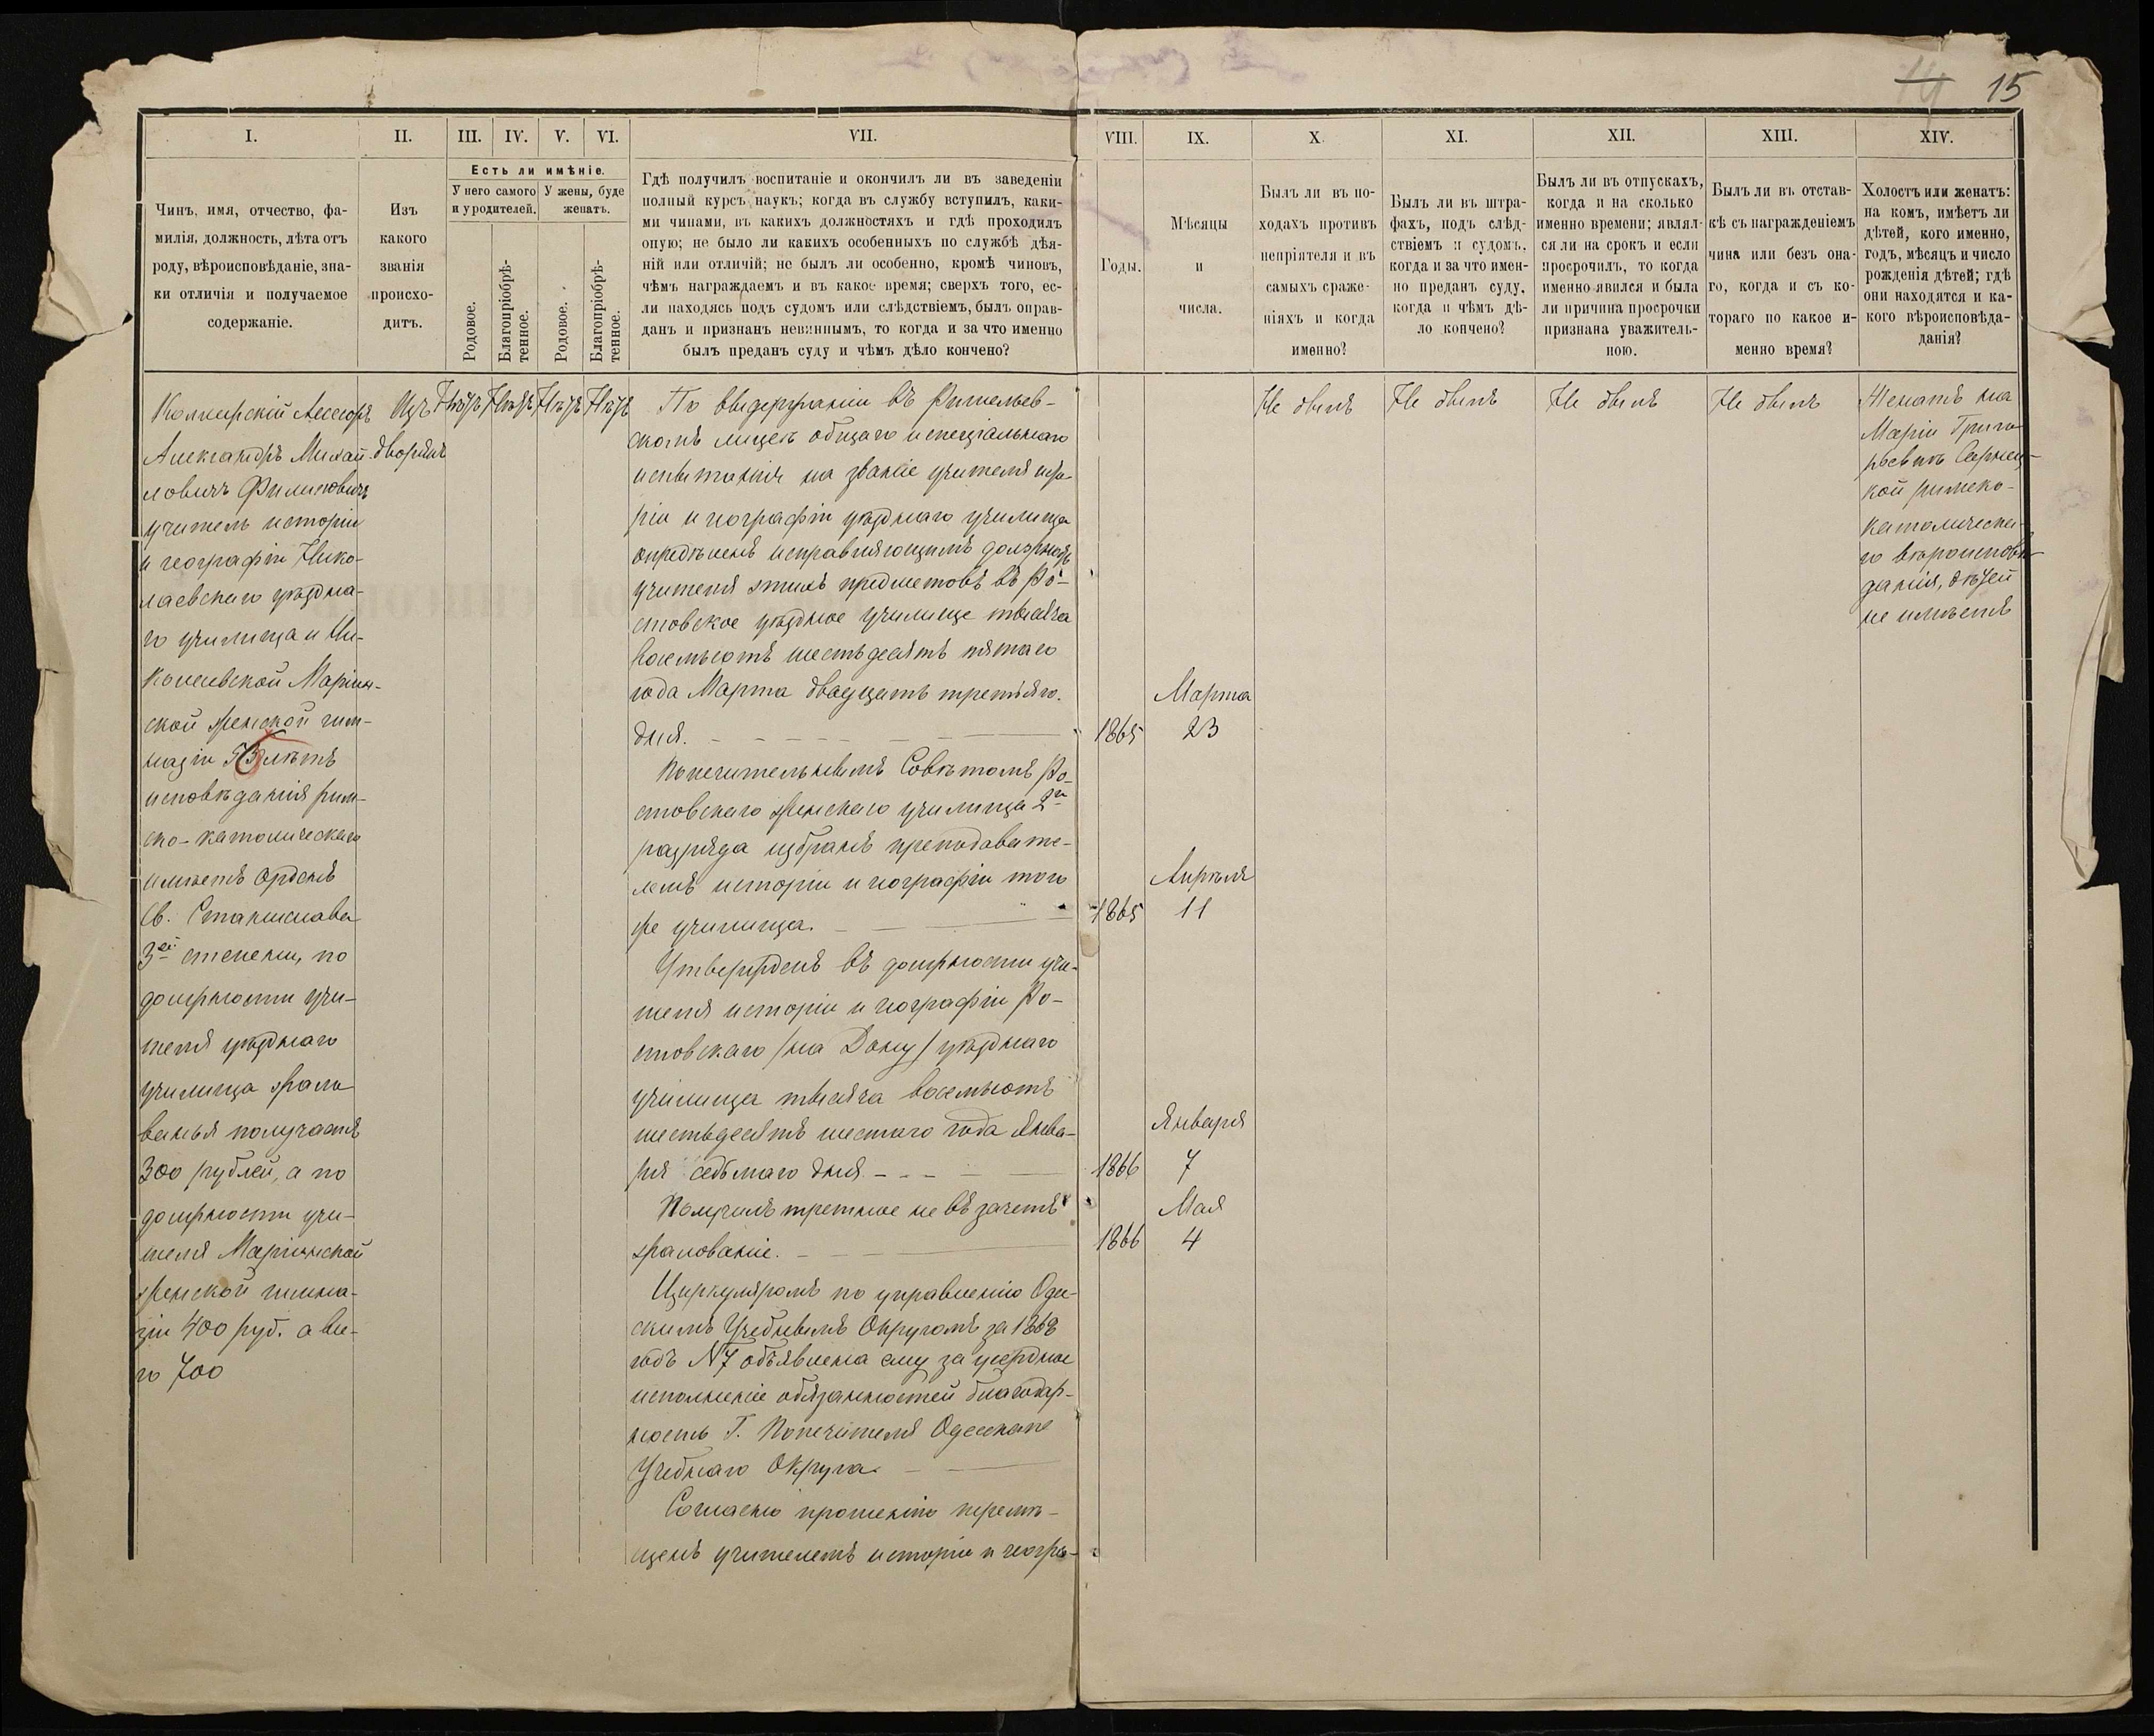 14 15
I.
II.
III.
IV.
V.
VI.
VII.
VIII.
IX.
X.
XI.
XII.
XIII.
XIV.
Чинъ, имя, отчество, фа-
милія, должность, лѣта отъ
роду, вѣроисповѣданіе, зна-
ки отличія и получаемое
содержаніе.
Изъ
какого
званія
происхо-
дитъ.
Есть ли имѣніе.
У него самого
и у родителей.
У жены, буде
женатъ.
Родовое.
Благопріобрѣ-
тенное.
Родовое.
Благопріобрѣ-
тенное.
Гдѣ получилъ воспитаніе и окончилъ ли въ заведеніи
полный курсъ наукъ; когда въ службу вступилъ, каки-
ми чинами, въ какихъ должностяхъ и гдѣ проходилъ
оную; не было ли какихъ особенныхъ по службѣ дѣя-
ній или отличій; не былъ ли особенно, кромѣ чиновъ,
чѣмъ награждаемъ и въ какое время; сверхъ того, ес-
ли находясь подъ судомъ или слѣдствіемъ, былъ оправ-
данъ и признанъ невиннымъ, то когда и за что именно
былъ преданъ суду и чѣмъ дѣло кончено?
Годы.
Мѣсяцы
и
числа.
Былъ ли въ по-
ходахъ противъ
непріятеля и въ
самыхъ сраже-
ніяхъ и когда
именно?
Былъ ли въ штра-
фахъ, подъ слѣд-
ствіемъ и судомъ,
когда и за что имен-
но преданъ суду,
когда и чѣмъ дѣ-
ло кончено?
Былъ ли въ отпускахъ,
когда и на сколько
именно времени; являл-
ся ли на срокъ и если
просрочилъ, то когда
именно явился и была
ли причина просрочки
признана уважитель-
ною.
Былъ ли въ отстав-
кѣ съ награжденіемъ
чина или безъ она-
го, когда и съ ко-
тораго по какое и-
менно время?
Холостъ или женатъ:
на комъ, имѣетъ ли
дѣтей, кого именно,
годъ, мѣсяцъ и число
рожденія дѣтей; гдѣ
они находятся и ка-
кого вѣроисповѣда-
данія?
Коллежскій Ассесоръ
Александръ Михай-
ловичъ Филиповичъ
учитель исторіи
и географіи Нико-
лаевскаго уѣздна-
го училища и Ни-
колаевской Маріин-
ской женской гим-
назіи лѣтъ
исповѣданія рим-
ско-католическаго
имѣетъ орденъ
Св. Станислава
3ей степени, по
должности учи-
теля уѣзднаго
училища жало
ванья получаетъ
300 рублей, а по
должности учи-
теля Маріинской
женской гимна-
зіи 400 руб. а все-
го 700
Изъ
дворянъ
Нѣтъ
Нѣтъ
Нѣтъ
Нѣтъ
По выдержаніи въ Ришельев-
скомъ лицеѣ общаго и спеціальнаго
испытанія на званіе учителя исто-
ріи и географіи уѣзднаго училища
опредѣленъ исправляющимъ должность
учителя этихъ предметовъ въ Ро-
стовское уѣздное училище тысяча
восемьсотъ шестьдесятъ пятаго
года Марта двадцать третьяго
дня.
Попечительнымъ Совѣтомъ Ро-
стовскаго женскаго училища 2го
разряда избранъ преподавате-
лемъ исторіи и географіи того
же училища.
Утвержденъ въ должности учи-
теля исторіи и географіи Ро-
стовскаго /на Дону/ уѣзднаго
училища тысяча восемьсотъ
шестьдесятъ шестаго года Янва-
ря седьмаго дня
Получилъ третное не въ зачетъ
жалованіе.
Циркуляромъ по управленію Оде-
скимъ Учебнымъ Округомъ за 1868
годъ N7 объявлена ему за усердное
исполненіе обязанностей благодар-
ность Г. Попечителя Одесскаго
Учебнаго Округа.
Согласно прошенію перемѣ-
щенъ учителемъ исторіи и геогра-
Марта
1865 23
Апрѣля
1865 11
Января
1866 7
Мая
1866 4
Не былъ
Не былъ
Не былъ
Не былъ
Женатъ на
Маріи Григо-
рьевнѣ
кой римско-
католическа-
го вѣроисповѣ-
данія, дѣтей
не имѣетъ